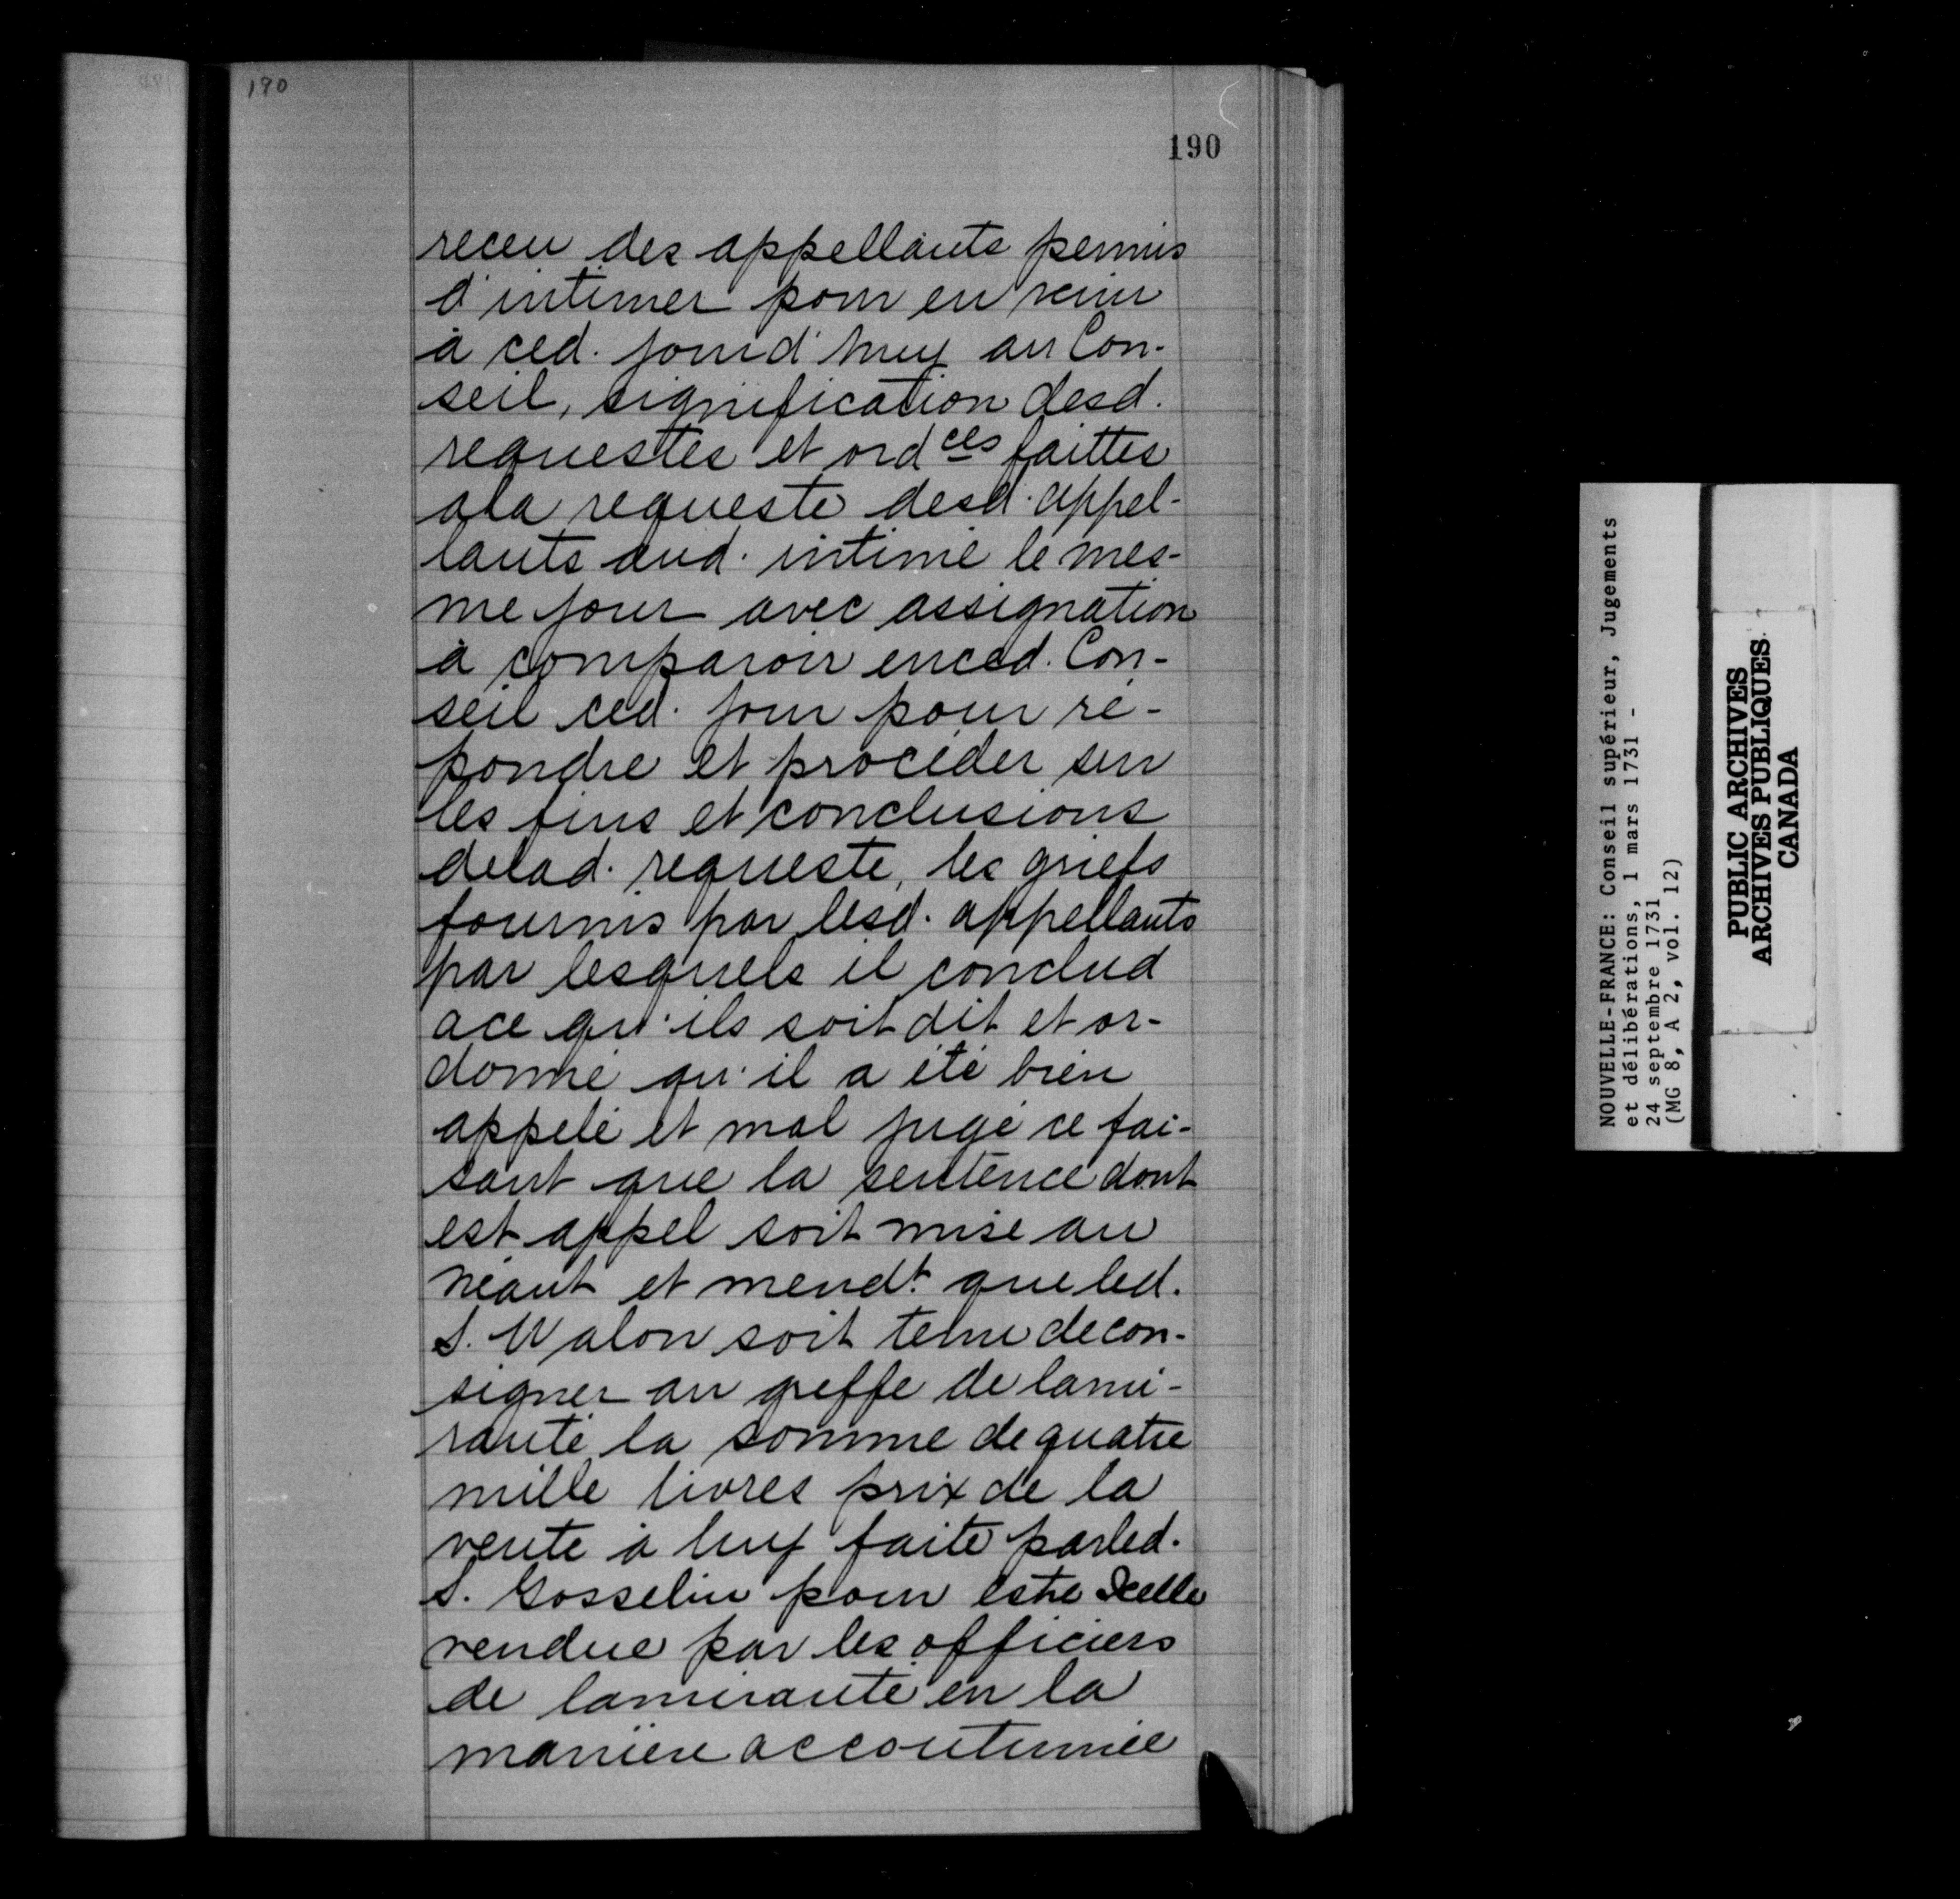 190
190
receu des appellants permis
d'intimer pour en venir
à ced. jourd'huy au Con-
seil, signification desd.
requestes et ordces faittes
ala requeste desd. appel-
lants aud. intimé le mes-
me jour avec assignation
à comparoir enced. Con-
seil ced. jour pour ré-
pondre et procéder sur
les fins et conclusions
delad. requeste, les griefs
fournis par lesd. appellants
par lesquels il conclud
ace qu'ils soit dit et or-
donné qu'il a été bien
appelé et mal jugé ce fai-
sant que la sentence dont
est appel soit mise au
néant et mendt. que led.
S. Walon soit tenu de con-
signer au greffe de lami-
rauté la somme de quatre
mille livres prix de la
vente à luy faite parled.
S. Gosselin pour estre Icelle
rendue par les officiers
de lamirauté en la
manière accoutumée
NOUVELLE-FRANCE: Conseil supérieur, Jugements
et délibérations, 1 mars 1731 -
24 septembre 1731
(MG 8, A 2, vol. 12)
PUBLIC ARCHIVES
ARCHIVES PUBLIQUES
CANADA